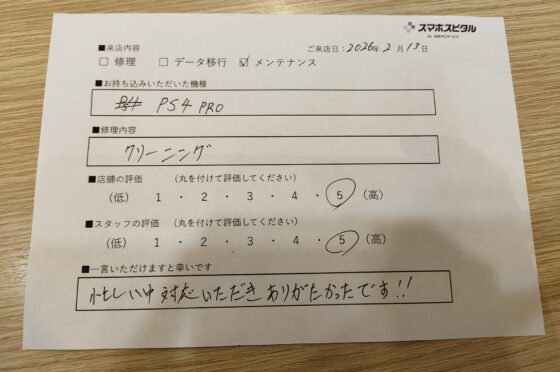 スマホスピタル
■来店内容
ご来店日：2026年 2月 13日
□ 修理 □ データ移行 ☑ メンテナンス
■お持ち込みいただいた機種
PS4 PRO
■修理内容
クリーニング
■店舗の評価 （丸を付けて評価してください）
（低） 1 ・ 2 ・ 3 ・ 4 ・ 5 （高）
■スタッフの評価 （丸を付けて評価してください）
（低） 1 ・ 2 ・ 3 ・ 4 ・ 5 （高）
■一言いただけますと幸いです
忙しい中 対応いただき ありがたかったです!!